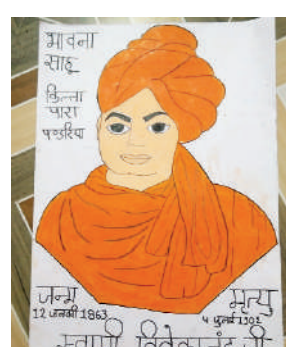 भावना
साहू
किल्ला
पारा
पण्डरिया
जन्म
12 जनवरी 1863
मृत्यु
4 जुलाई 1902
स्वामी विवेकानंद जी